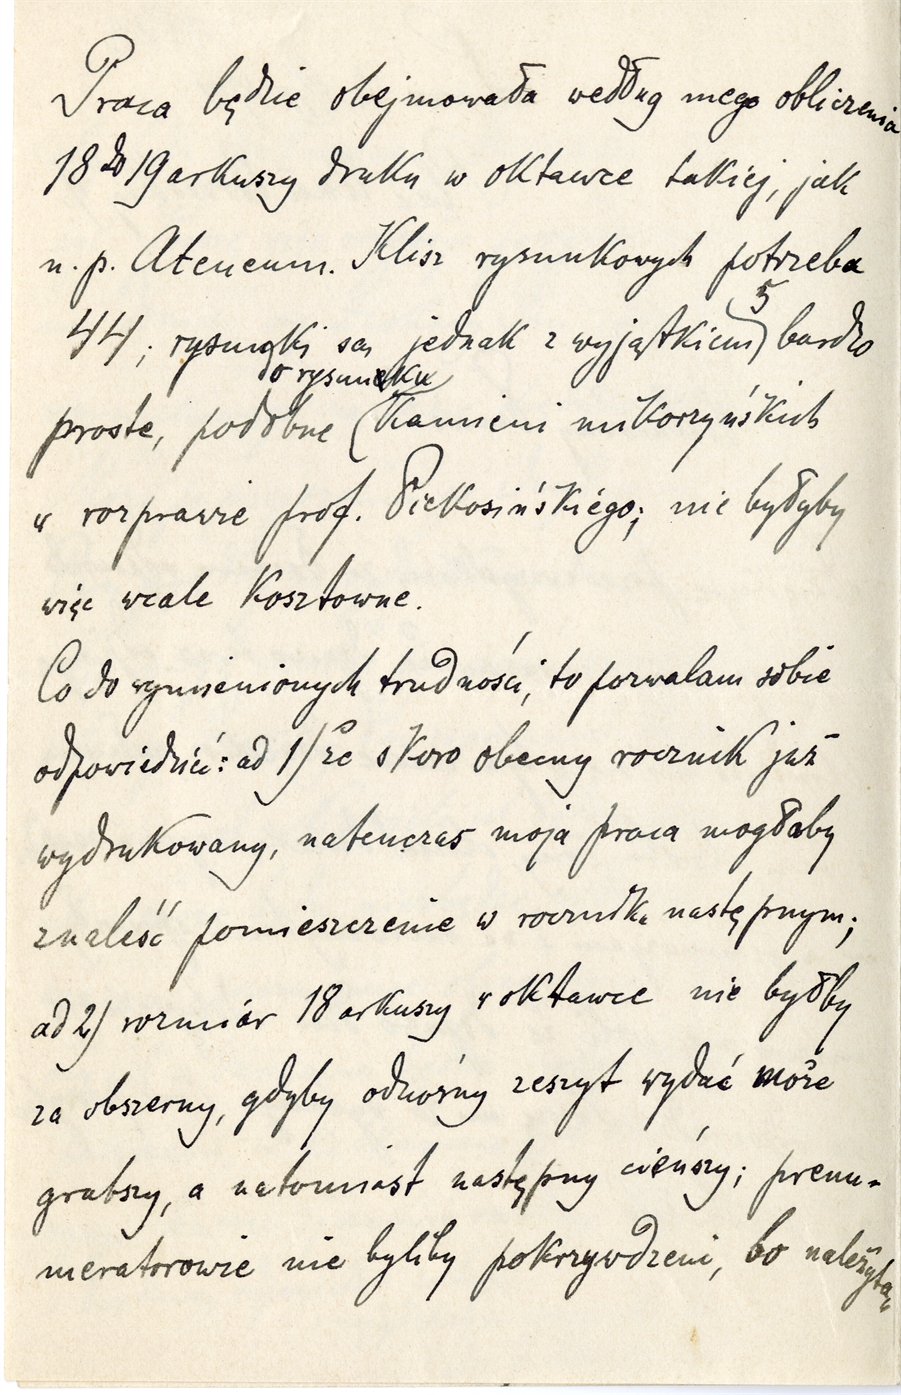 Praca będzie obejmowała według mego obliczenia
18 do 19 arkuszy druku w oktawce takiej, jak
n. p. Ateneum. Klisz rysunkowych potrzeba
44; rysunki są jednak z wyjątkiem 5 bardzo
proste, podobne do rysunku kamieni mikorzyńskich
w rozprawie prof. Piekosińskiégo; nie byłyby
więc wcale kosztowne.
Co do wymienionych trudności, to pozwalam sobie
odpowiedzieć: ad 1) że skoro obecny rocznik już
wydrukowany, natenczas moja praca mogłaby
znaleść pomieszczenie w roczniku następnym;
ad 2) rozmiar 18 arkuszy w oktawce nie byłby
za obszerny, gdyby odnośny zeszyt wydać może
grubszy, a natomiast następny cieńszy; prenu-
meratorowie nie byliby pokrzywdzeni, bo należytą